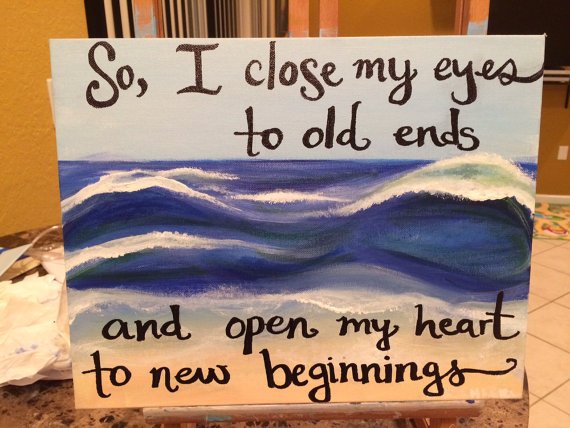 So, I close my eyes
to old ends
and open my heart
to new beginnings